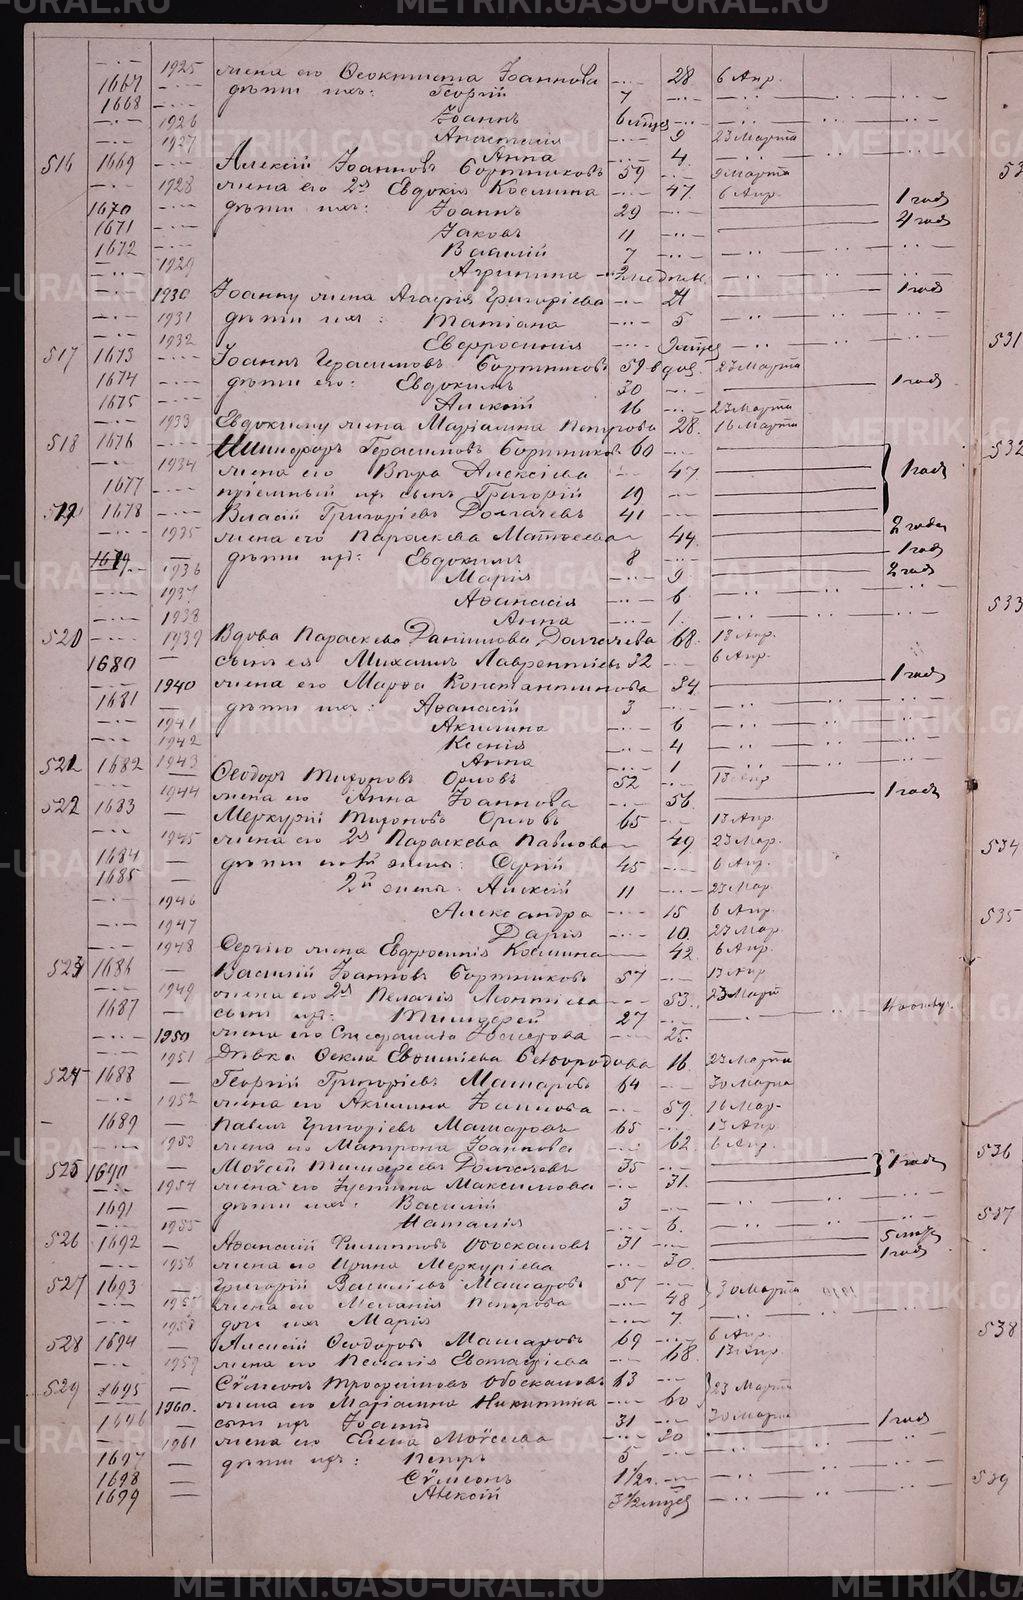 1925 жена его Ѳеоктиста Іоаннова 28 6 Апр.
1667 дѣти ихъ: Георгій 7
1668 Іоаннъ 6 мцев
1926 Анастасія 9 23 Марта
1927 Анна 4
516 1669 Алексій Іоанновъ Бортниковъ 59 9 Марта
1928 жена его 2я Евдокія Космина 47 6 Апр.
1670 дѣти ихъ: Іоаннъ 29 1 годъ
1671 Іаковъ 11 4 года
1672 Василій 7
1929 Агрипина 2 недѣли
1930 Іоанну жена Агафія Григоріева 24 1 годъ
1931 дѣти ихъ: Татіана 5
1932 Евфросинія 9 мцев
517 1673 Іоаннъ Герасимовъ Бортниковъ 59 вдов. 23 Марта
1674 дѣти его: Евдокимъ 30 1 годъ
1675 Алексій 16 23 Марта
1933 Евдокиму жена Маріамна Петрова 28 16 Марта
518 1676 Герасимовъ Бортниковъ 60
1934 жена его Вѣра Алексіева 47 1 годъ
1677 пріемный ихъ сынъ Григорій 19
519 1678 Власій Григоріевъ Долгачевъ 41
1935 жена его Параскева Матвѣева 44 2 года
1679 дѣти ихъ: Евдокимъ 8 1 годъ
1936 Марія 9 2 года
1937 Аѳанасія 6
1938 Анна 1
520 1939 Вдова Параскева Даніилова Долгачева 68 13 Апр.
1680 сынъ ея Михаилъ Лаврентіевъ 32 6 Апр.
1940 жена его Марѳа Константинова 34 1 годъ
1681 дѣти ихъ: Аѳанасій 3
1941 Акилина 6
1942 Ксенія 4
1943 Анна 1
521 1682 Ѳеодоръ Тихоновъ Орловъ 52 13 Апр
1944 жена его Анна Іоаннова 56 1 годъ
522 1683 Меркурій Тихоновъ Орловъ 65 13 Апр.
1945 жена его 2я Параскева Павлова 49 23 Мар.
1684 дѣти 1й жены: Сергій 45 6 Апр.
1685 2й жены: Алексій 11 23 Мар.
1946 Александра 15 6 Апр.
1947 Дарія 10 23 Мар.
1948 Сергію жена Евфросинія Космина 42 6 Апр.
523 1686 Василій Іоанновъ Бортниковъ 57 13 Апр
1949 жена его 2я Пелагія Леонтіева 53 23 Март
1687 сынъ ихъ: Тимоѳей 27
1950 жена его 25
1951 Дѣвка Ѳекла Евѳиміева Бѣлобородова 16 23 Марта
524 1688 Георгій Григоріевъ Машаровъ 64 30 Марта
1952 жена его Акилина Іоаннова 59 16 Мар.
1689 Павелъ Григоріевъ Машаровъ 65 13 Апр
1953 жена его Матрона Іоаннова 62 6 Апр.
525 1690 Моѵсей Тимоѳеевъ Долгачевъ 35 1 годъ
1954 жена его Іустина Максимова 31
1691 дѣти ихъ: Василій 3
1955 Наталія 6
526 1692 Аѳанасій Филипповъ Обоскаловъ 31
1956 жена его Ирина Меркуріева 30 1 годъ
527 1693 Григорій Василіевъ Машаровъ 57 30 Марта
1957 жена его Меланія Петрова 48
1958 дочь ихъ Марія 7
528 1694 Алексій Ѳеодоровъ Машаровъ 69 6 Апр.
1959 жена его Пелагія Евстафіева 68 13 Апр.
529 1695 Сѵмеонъ Трофимовъ Обоскаловъ 63 23 Марта
1960 жена его Маріамна Никитина 60
1696 сынъ ихъ Іоаннъ 31 30 Марта 1 годъ
1961 жена его Елена Моѵсеева 30
1697 дѣти ихъ: Петръ 5
1698 Сѵмеонъ 1 1/2 г.
1699 Алексій 3 1/2 мцев
531
532
533
534
535
536
537
538
539
METRIKI.GASO-URAL.RU